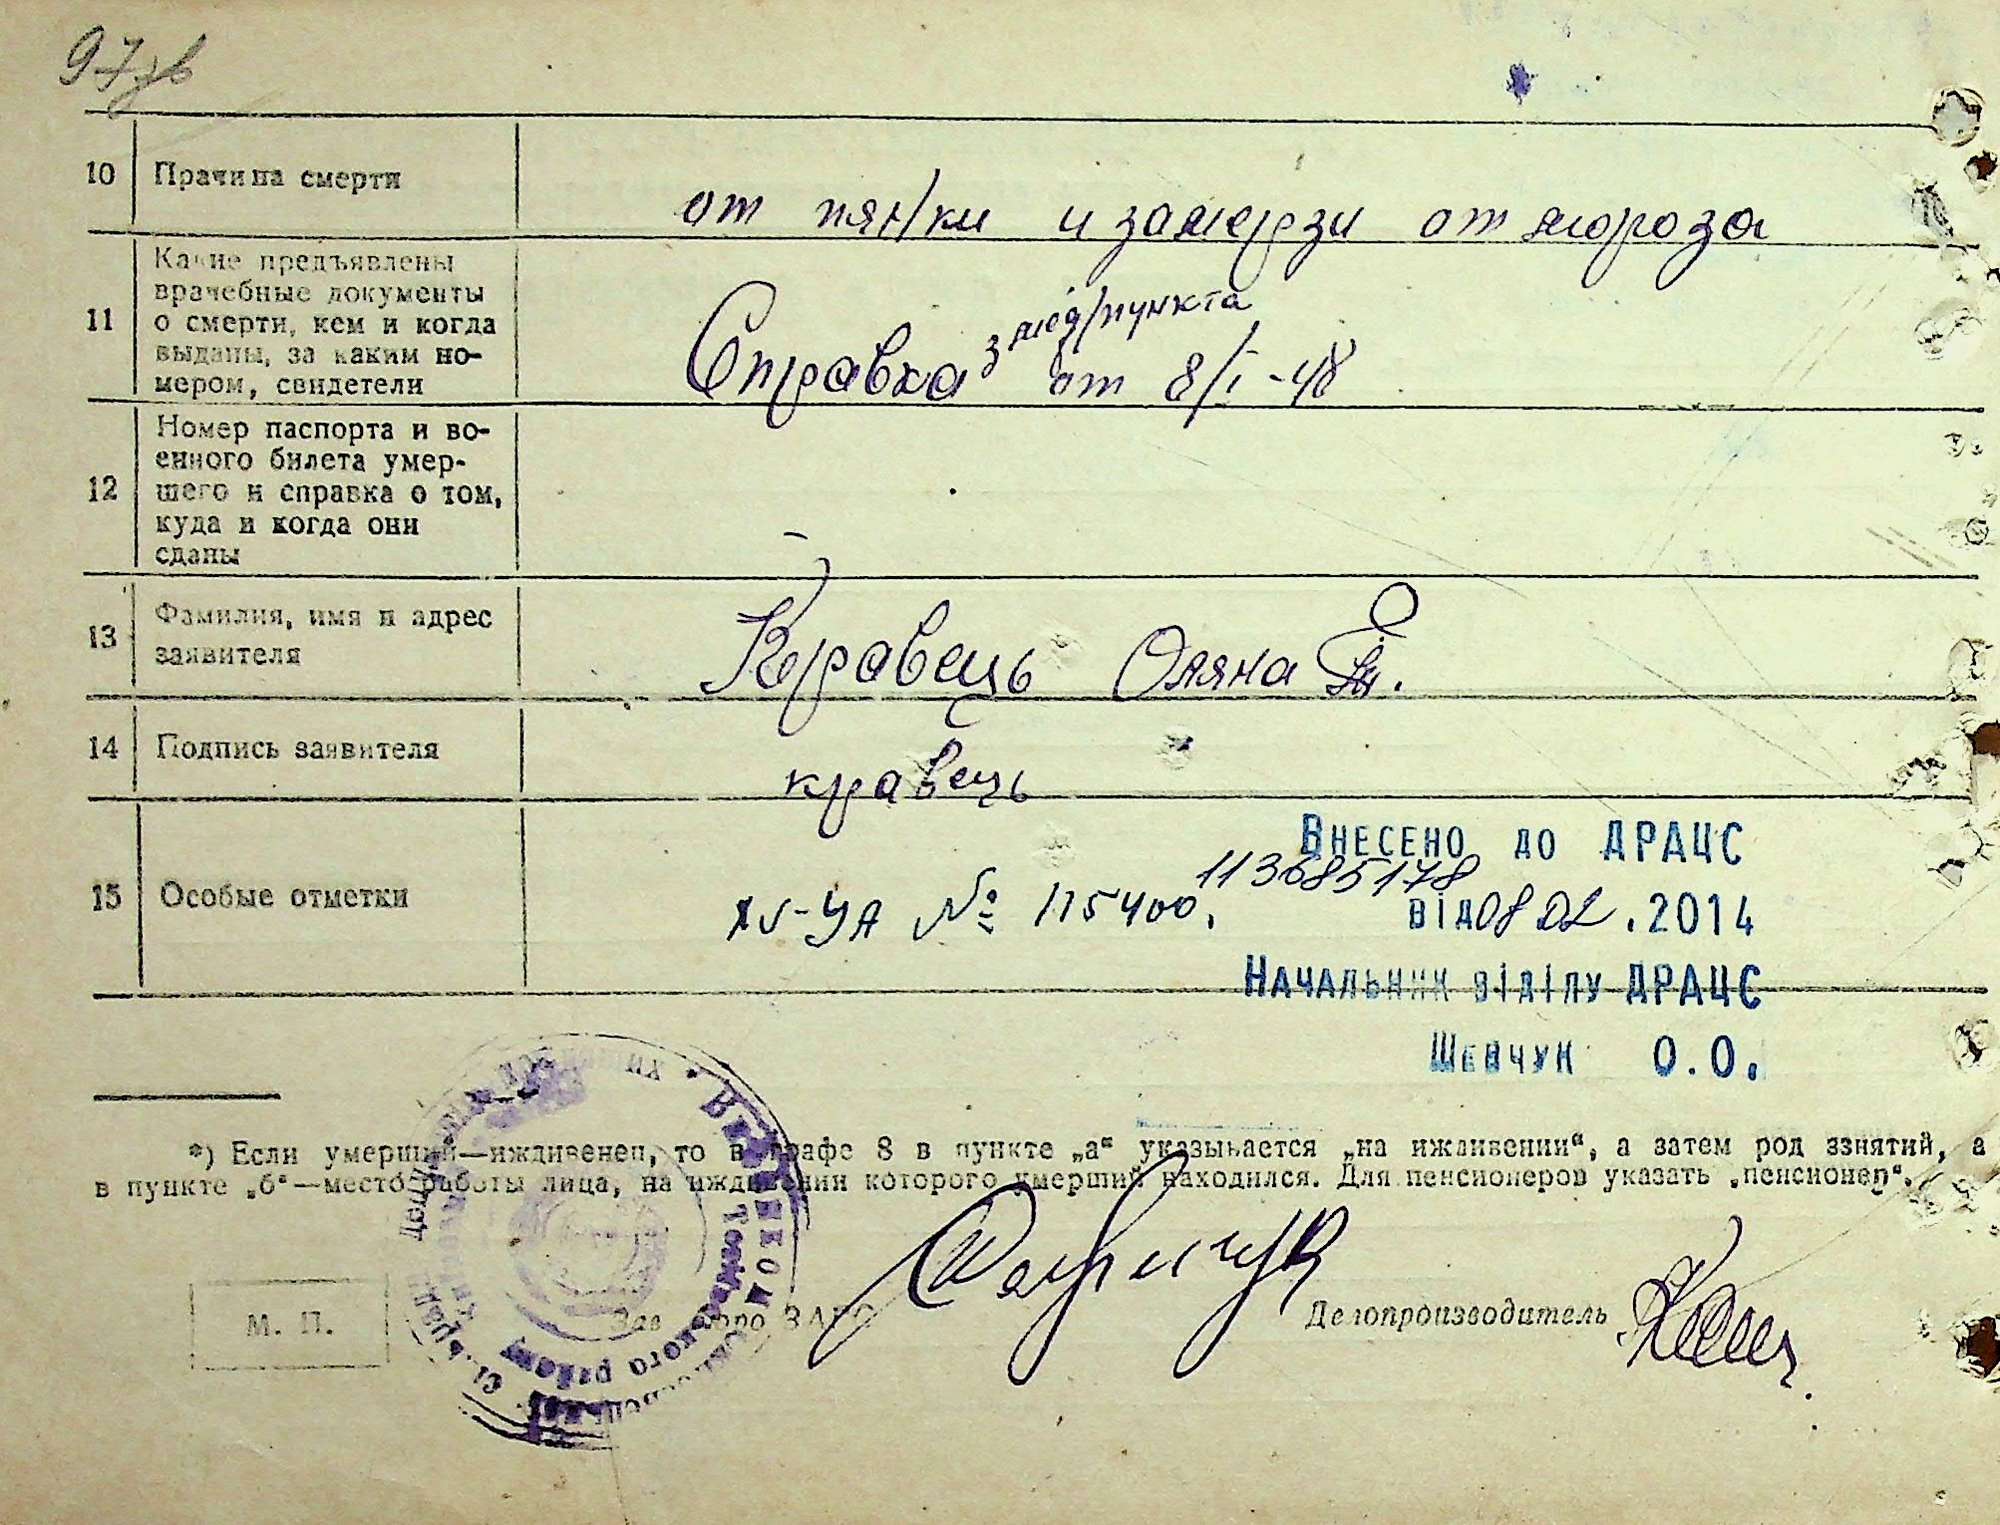 97зв
10 Причина смерти
от пян/ки и замерзи от мороза
11 Какие предъявлены
врачебные документы
о смерти, кем и когда
выданы, за каким но-
мером, свидетели
Справка з мед/пункта
от 8/I-48
12 Номер паспорта и во-
енного билета умер-
шего и справка о том,
куда и когда они
сданы
13 Фамилия, имя и адрес
заявителя
Кравець Оляна
14 Подпись заявителя
кравець
15 Особые отметки
XV-УА № 115400.
Внесено до ДРАЦС
113685178
від 08 02 .2014
Начальник відділу ДРАЦС
Шевчук О.О.
*) Если умерший—иждивенец, то в графе 8 в пункте „а“ указывается „на иждивении“, а затем род занятий, а
в пункте „б“—место работы лица, на иждивении которого умерший находился. Для пенсионеров указать „пенсионер“.
М. П.
Зав бюро ЗАГС
Делопроизводитель
Виконком
ського району